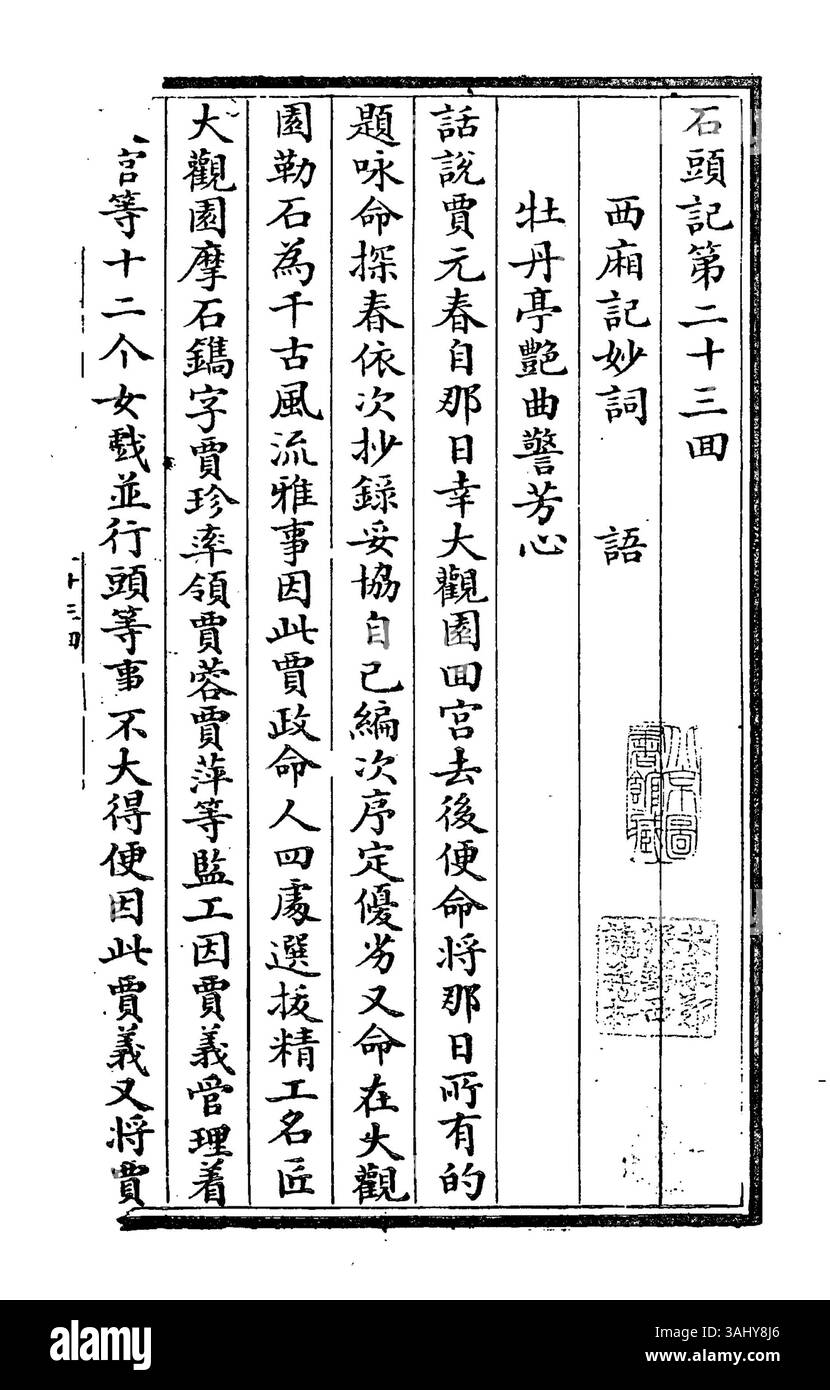 石頭記第二十三回
西廂記妙詞　語
牡丹亭艷曲警芳心
話説賈元春自那日幸大觀園回宮去後便命將那日所有的
題咏命探春依次抄錄妥協自己編次序定優劣又命在大觀
園勒石為千古風流雅事因此賈政命人四處選拔精工名匠
大觀園摩石鐫字賈珍率領賈蓉賈萍等監工因賈義管理着
官等十二个女戲並行頭等事不大得便因此賈義又將賈
北京圖
書館藏
alamy
Image ID: 3AHY8J6
www.alamy.com